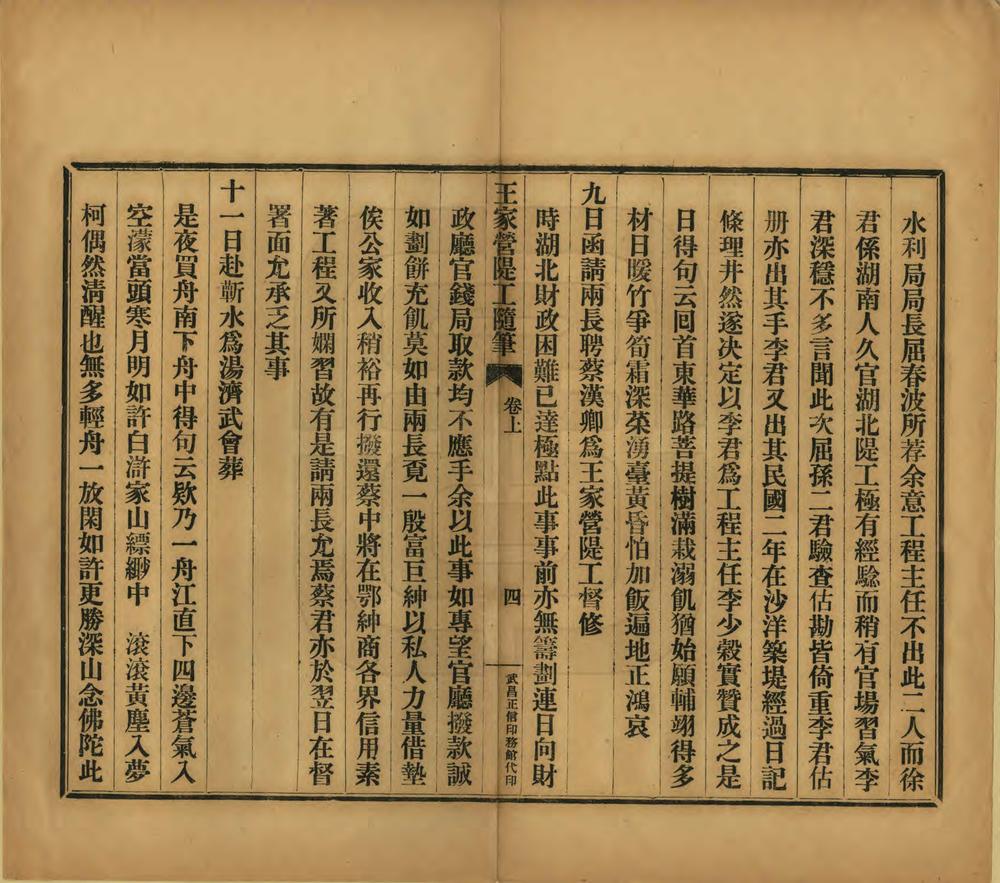 水利局局長屈春波所荐余意工程主任不出此二人而徐
君係湖南人久官湖北隄工極有經驗而稍有官場習氣李
君深穩不多言聞此次屈孫二君驗查估勘皆倚重李君估
册亦出其手李君又出其民國二年在沙洋築堤經過日記
條理井然遂決定以李君爲工程主任李少榖實贊成之是
日得句云回首東華路菩提樹滿栽溺飢猶始願輔翊得多
材日暖竹爭筍霜深菜湧臺黃昏怕加飯遍地正鴻哀
九日函請兩長聘蔡漢卿爲王家營隄工督修
時湖北財政困難已達極點此事事前亦無籌劃連日向財
王家營隄工隨筆 卷上 四 武昌正信印務館代印
政廳官錢局取款均不應手余以此事如專望官廳撥款誠
如劃餅充飢莫如由兩長覓一殷富巨紳以私人力量借墊
俟公家收入稍裕再行撥還蔡中將在鄂紳商各界信用素
著工程又所嫻習故有是請兩長允焉蔡君亦於翌日在督
署面允承乏其事
十一日赴蘄水爲湯濟武會葬
是夜買舟南下舟中得句云欵乃一舟江直下四邊蒼氣入
空濛當頭寒月明如許白滸家山縹緲中 滾滾黃塵入夢
柯偶然淸醒也無多輕舟一放閑如許更勝深山念佛陀此